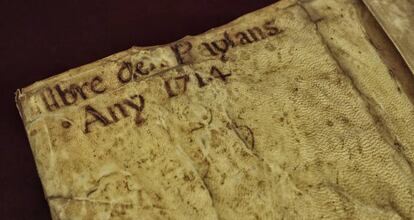 llibre de Puylans
Any 1714